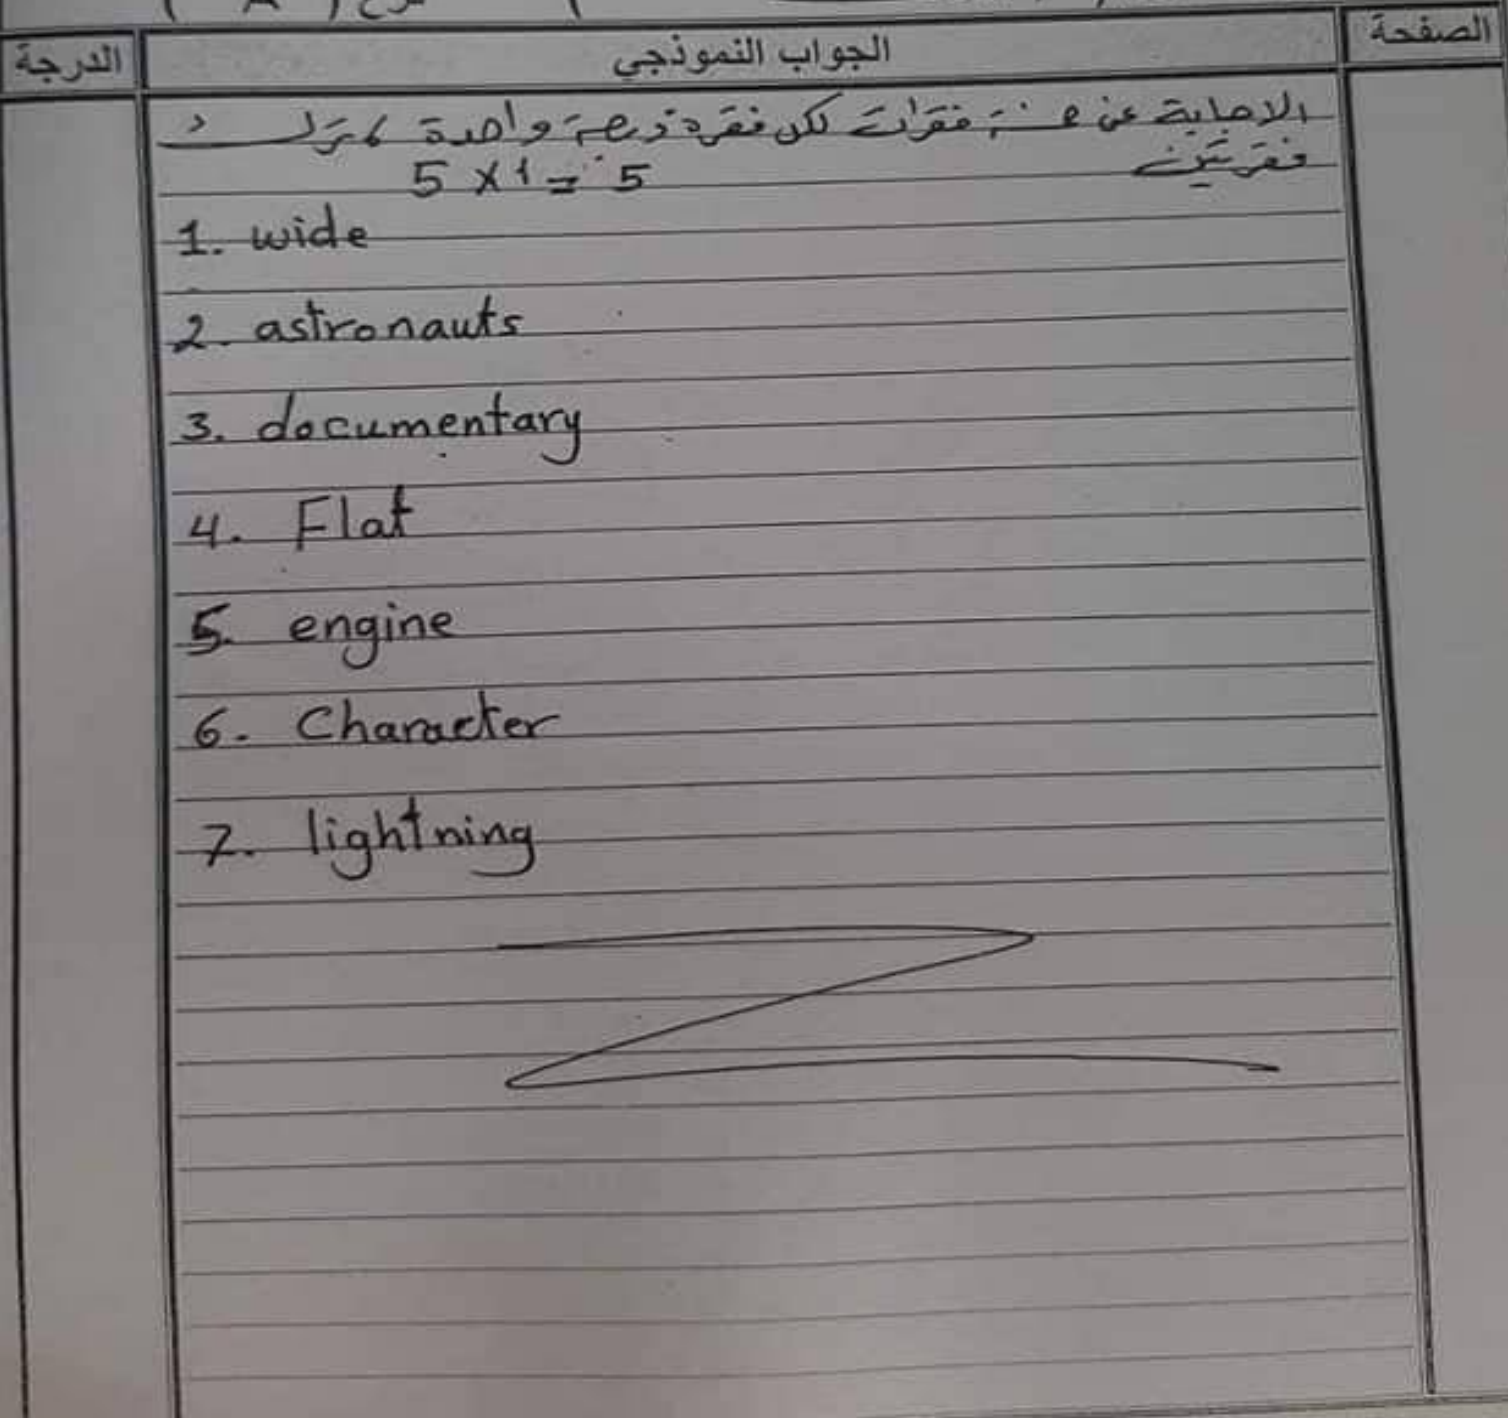 الصفحة
الجواب النموذجي
الدرجة
الاجابة عن خمسة فقرات لكل فقرة درجة واحدة
فقرتين
5 × 1 = 5
1. wide
2. astronauts
3. documentary
4. Flat
5. engine
6. Character
7. lightning